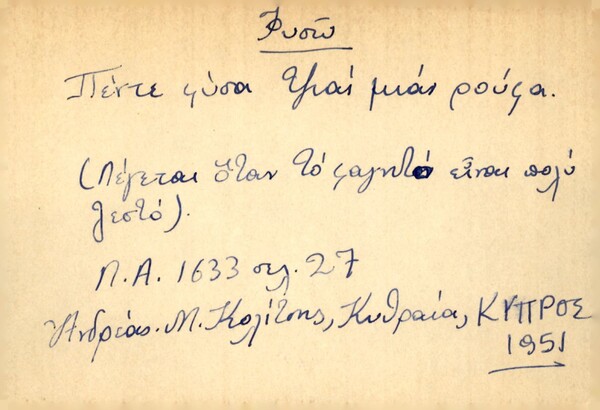 Φυσῶ
Πέντε φύσα τζιαί μιάν ρούφα.
(Λέγεται ὅταν τό φαγητό εἶναι πολύ
ζεστό).
Λ.Α. 1633 σελ. 27
Ἀνδρέας Μ. Κολίτσης, Κυθραία, ΚΥΠΡΟΣ
1951